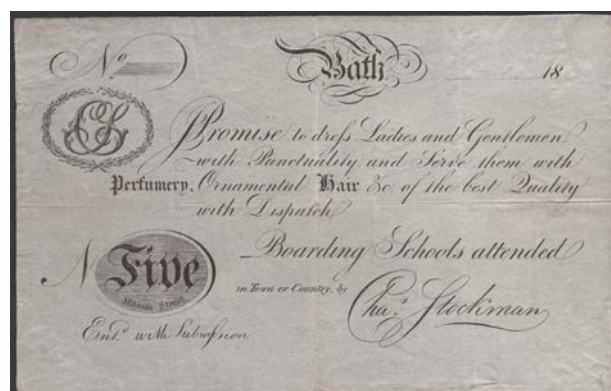 No
Bath 18
CS
I Promise to dress Ladies and Gentlemen
with Punctuality and Serve them with
Perfumery, Ornamental Hair &c. of the best Quality
with Dispatch
No Five
Milsom Street
Boarding Schools attended
in Town or Country, by
Chas. Stockman
Entd. with